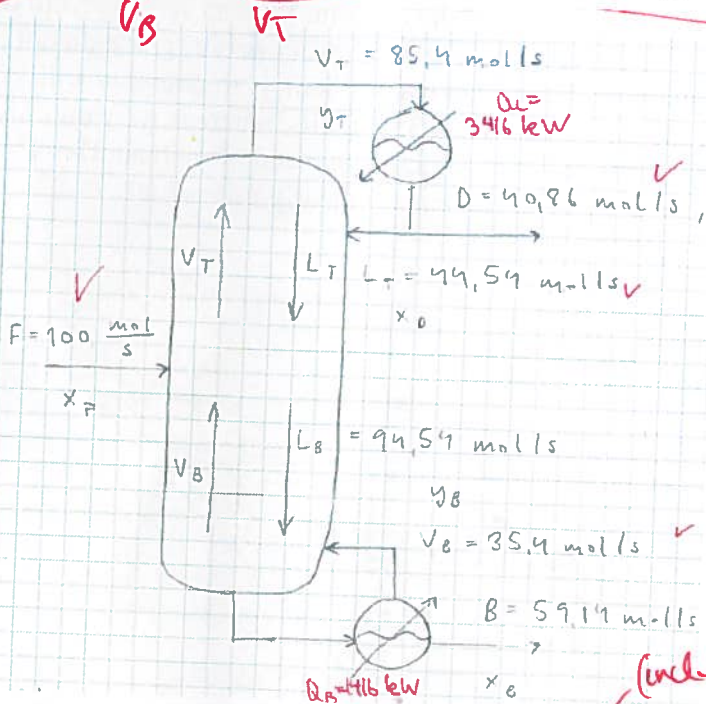 V_B V_T
V_T = 85,4 mol/s
y_T
Q_c =
3416 kW
D = 40,86 mol/s,
V_T L_T L_T = 44,54 mol/s
x_D
F = 100 mol/s
x_F
V_B L_B = 94,54 mol/s
y_B
V_B = 35,4 mol/s
B = 59,14 mol/s
Q_B = 1416 kW x_B
(incl